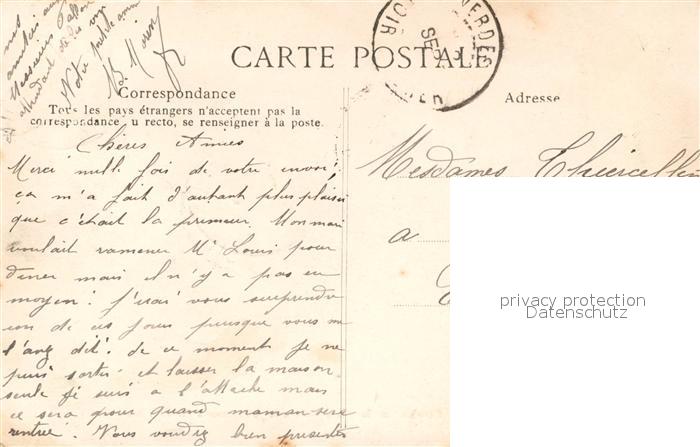 CARTE POSTALE
Correspondance
Tous les pays étrangers n'acceptent pas la
correspondance u recto, se renseigner à la poste.
Adresse
Chères Amies
Merci mille fois de votre envoi;
ça m'a fait d'autant plus plaisir
que c'était la primeur. Mon mari
voulait ramener Mr Louis pour
diner mais il n'y a pas eu
moyen! J'irai vous surprendre
un de ces jours puisque vous me
l'avez dit. de ce moment je ne
puis sortir et laisser la maison
seule je suis a l'attache mais
ce sera pour quand maman sera
rentrée. Vous voudrez bien présenter
nos
amitiés aux
Messieurs
Votre petite amie
Mesdames
a
privacy protection
Datenschutz